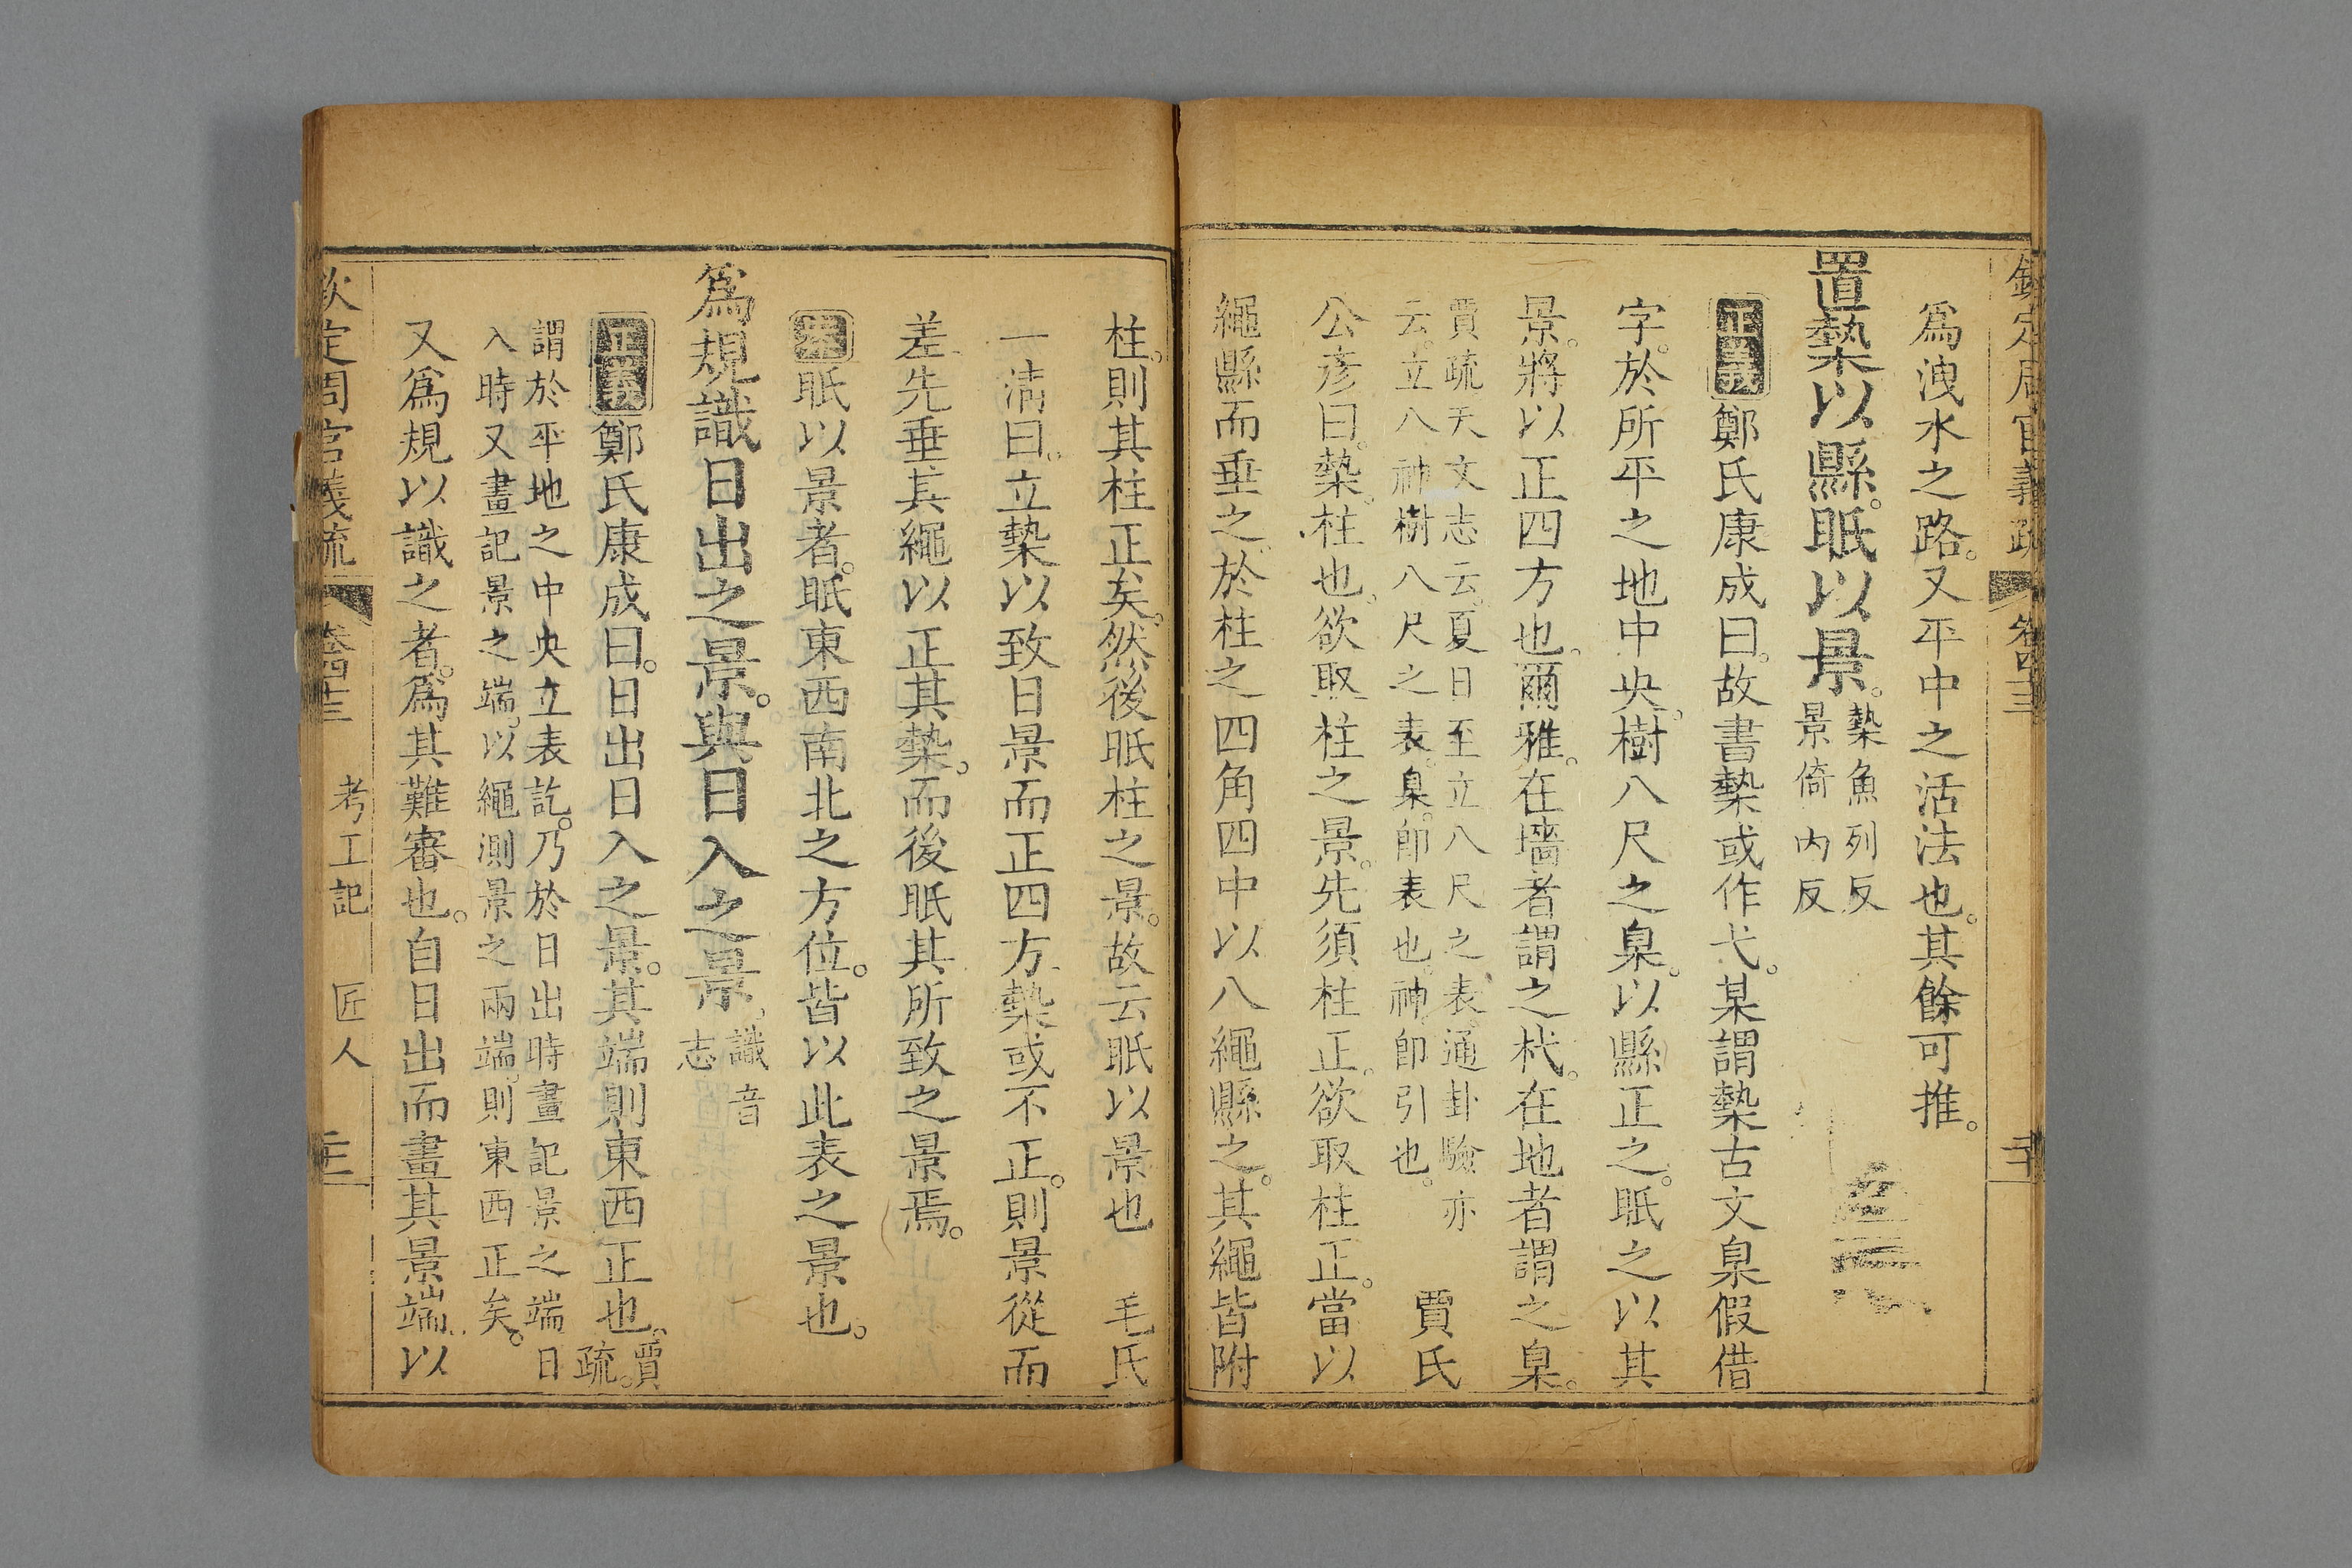 欽定周官義疏 卷四十三 二十
為洩水之路。又平中之活法也。其餘可推。
置槷以縣。眡以景。槷魚列反景倚內反
正義鄭氏康成曰。故書槷或作弋。某謂槷古文臬假借
字。於所平之地中央。樹八尺之臬。以縣正之。眡之以其
景。將以正四方也。爾雅。在墻者謂之杙。在地者謂之臬。
賈疏天文志云。夏日至立八尺之表。通卦驗亦
云。立八神樹八尺之表。臬。卽表也。神。卽引也。 賈氏
公彥曰。槷。柱也。欲取柱之景。先須柱正。欲取柱正。當以
繩縣而垂之。於柱之四角四中以八繩縣之。其繩皆附
柱。則其柱正矣。然後眡柱之景。故云眡以景也 毛氏
一淸曰。立槷以致日景而正四方。槷或不正。則景從而
差先垂其繩以正其槷。而後眡其所致之景焉。
案眡以景者。眡東西南北之方位。皆以此表之景也。
為規識日出之景。與日入之景。識音志
正義鄭氏康成曰。日出日入之景。其端則東西正也。賈疏。
謂於平地之中央立表訖。乃於日出時畫記景之端日
入時又畫記景之端。以繩測景之兩端。則東西正矣。
又為規以識之者。為其難審也。自日出而畫其景端。以
欽定周官義疏 卷四十三 考工記 匠人 二十一